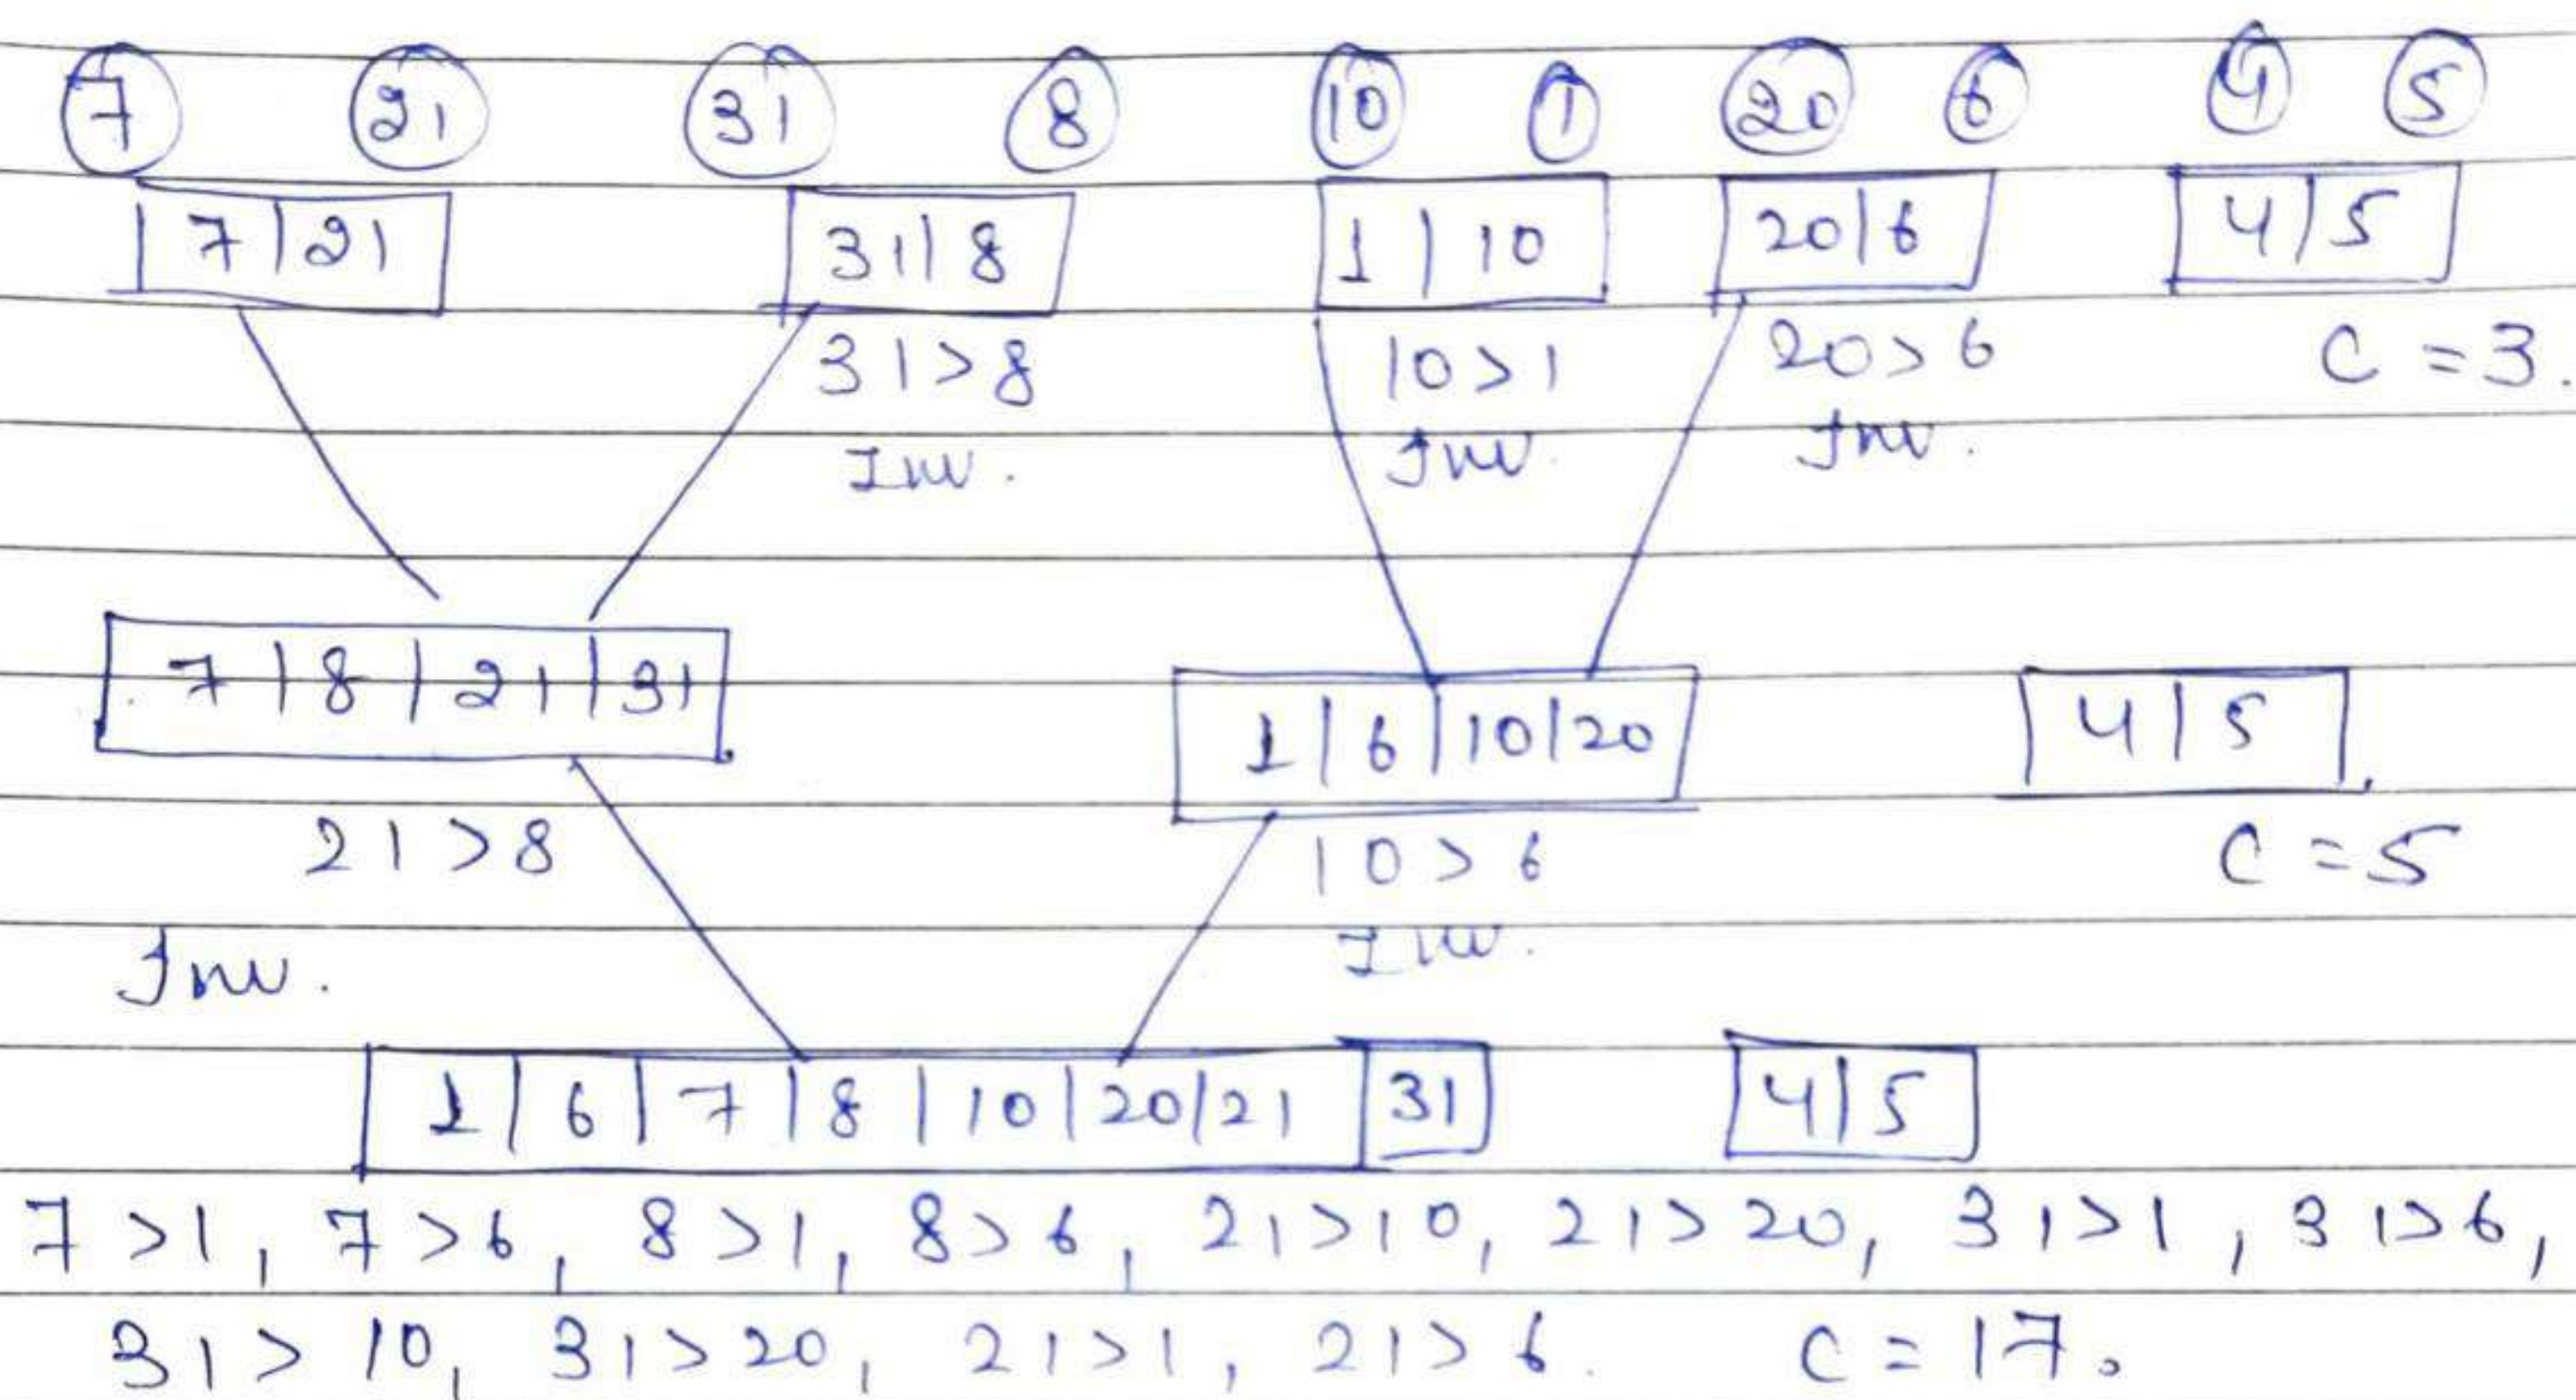 7 21 31 8 10 1 20 6 4 5
7 | 21 31 | 8 1 | 10 20 | 6 4 | 5
31 > 8 10 > 1 20 > 6 C = 3.
Inv. Inv. Inv.
7 | 8 | 21 | 31 1 | 6 | 10 | 20 4 | 5
21 > 8 10 > 6 C = 5
Inv. Inv.
1 | 6 | 7 | 8 | 10 | 20 | 21 | 31 4 | 5
7 > 1, 7 > 6, 8 > 1, 8 > 6, 21 > 10, 21 > 20, 31 > 1, 31 > 6,
31 > 10, 31 > 20, 21 > 1, 21 > 6. C = 17.